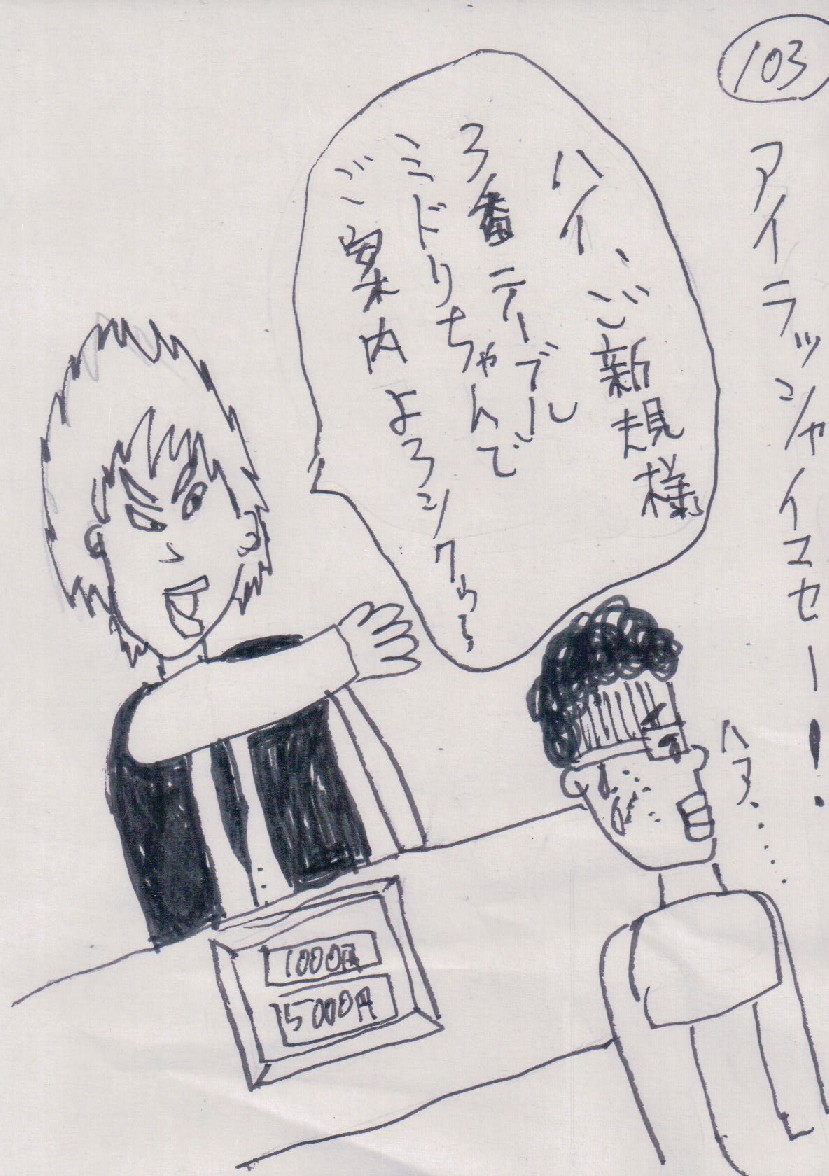 103
アイラッシャイマセー!
ハイ、ご新規様
3番テーブル
ミドリちゃんで
ご案内よろシクゥ〜
ハヌ.....
1000円
5000円